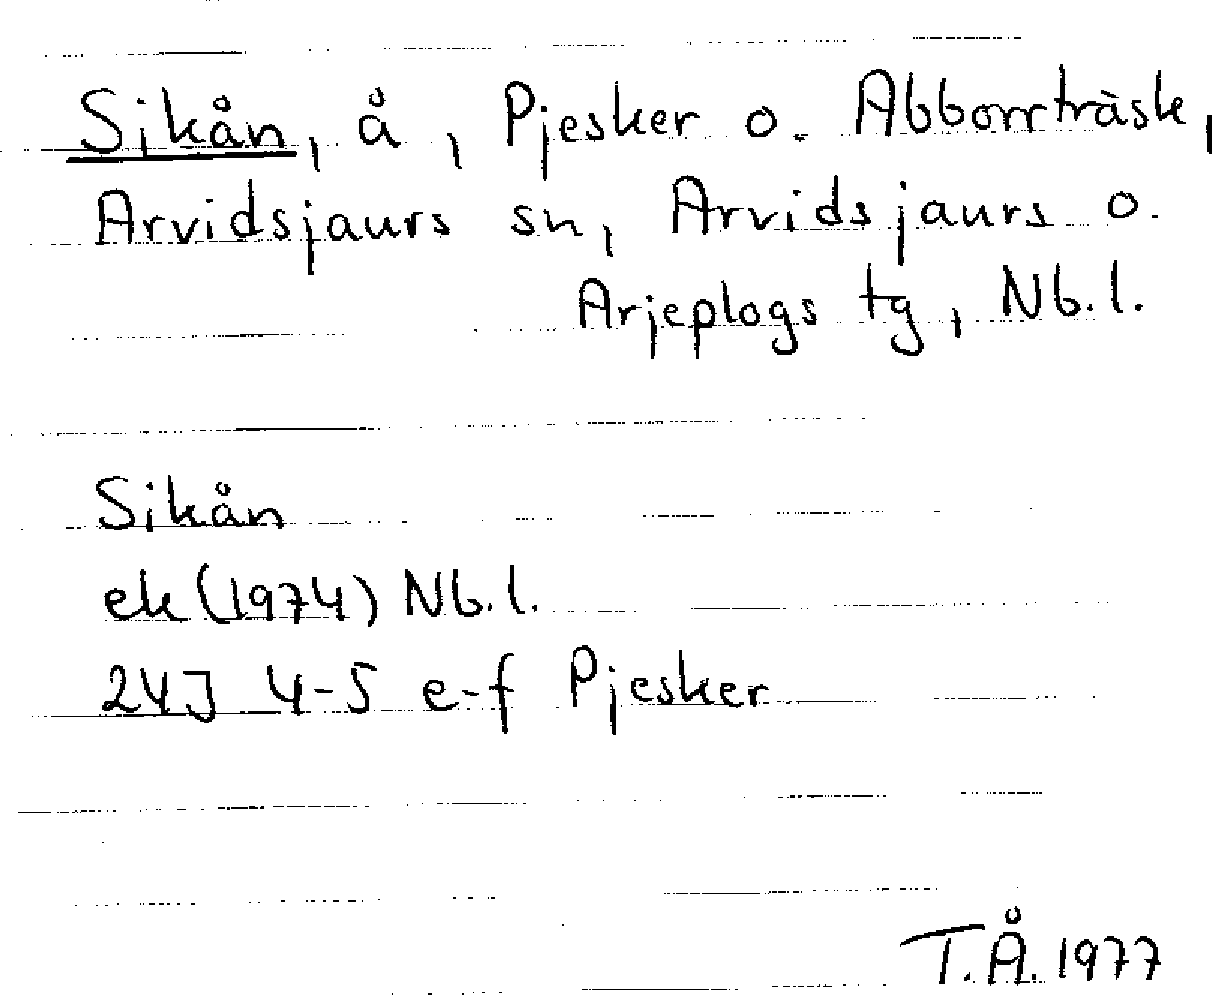 Sikån, å, Pjesker o. Abborrträsk,
Arvidsjaurs sn, Arvidsjaurs o.
Arjeplogs tg, Nb.l.
Sikån
ek (1974) Nb.l.
24J 4-5 e-f Pjesker
T.Å. 1977